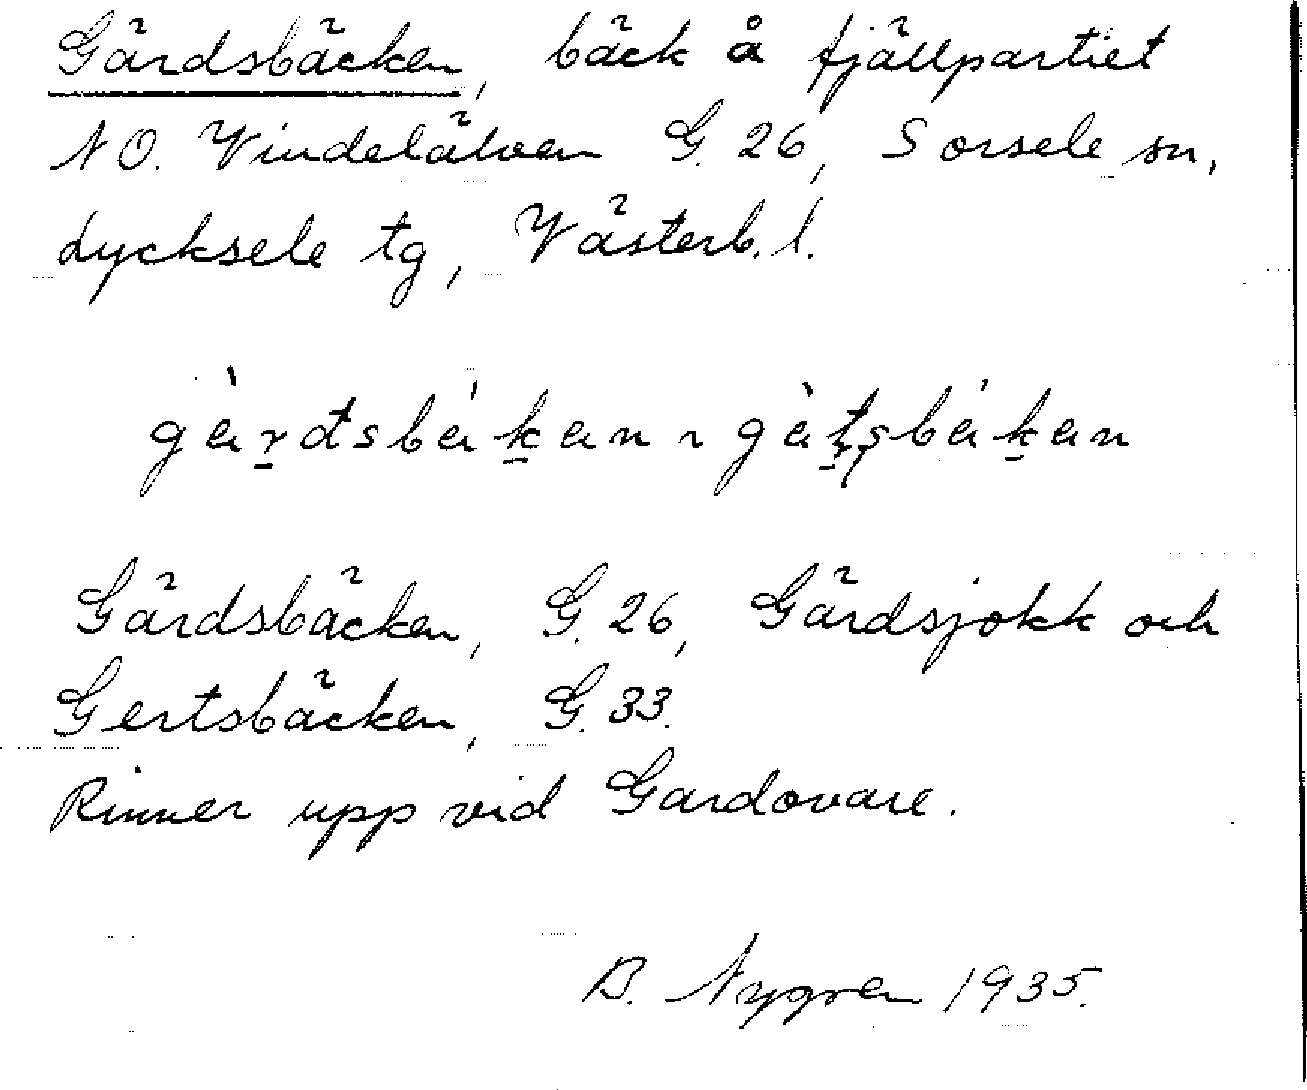 Gärdsbäcken, bäck å fjällpartiet
NO. Vindelälven G. 26, Sorsele sn,
Lycksele tg, Västerb. l.
Gärdsbäcken, G. 26, Gärdsjokk och
Gertsbäcken, G. 33.
Rinner upp vid Gardovare.
B. Nygren 1935.